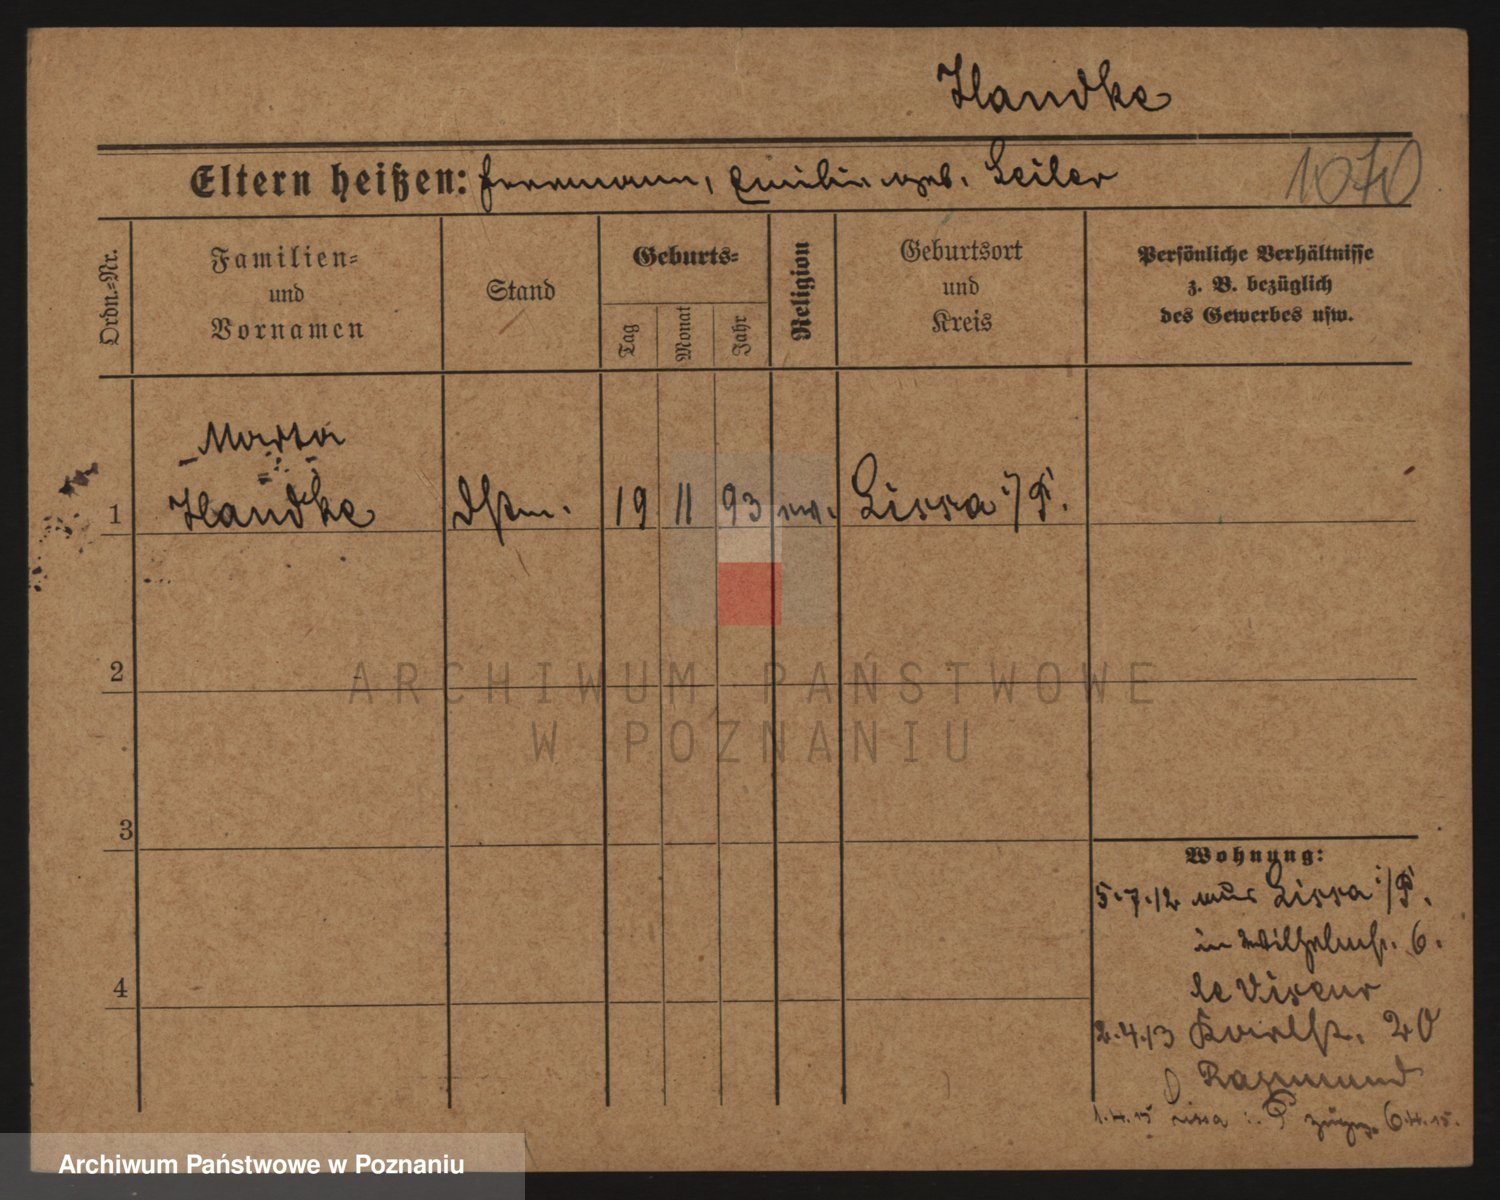 Handke
Eltern heißen: Hermann, Emilie geb. Seiler
1070
Ordn.-Nr.
Familien-
und
Vornamen
Stand
Geburts-
Tag
Monat
Jahr
Religion
Geburtsort
und
Kreis
Persönliche Verhältnisse
z. B. bezüglich
des Gewerbes usw.
Marta
1 Handke Dstm. 19 11 93 ev. Lissa i/P.
2
3
4
Wohnung:
5.7.12 aus Lissa i/P.
in Wilhelmstr. 6.
le Viseur
2.4.13 Karlstr. 20
1.4.15 Lissa i. P 6.4.15.
ARCHIWUM PAŃSTWOWE
W POZNANIU
Archiwum Państwowe w Poznaniu